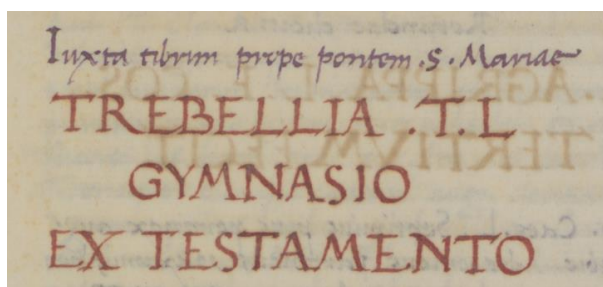 Iuxta tibrim prope pontem .S. Mariae
TREBELLIA .T.L
GYMNASIO
EX TESTAMENTO